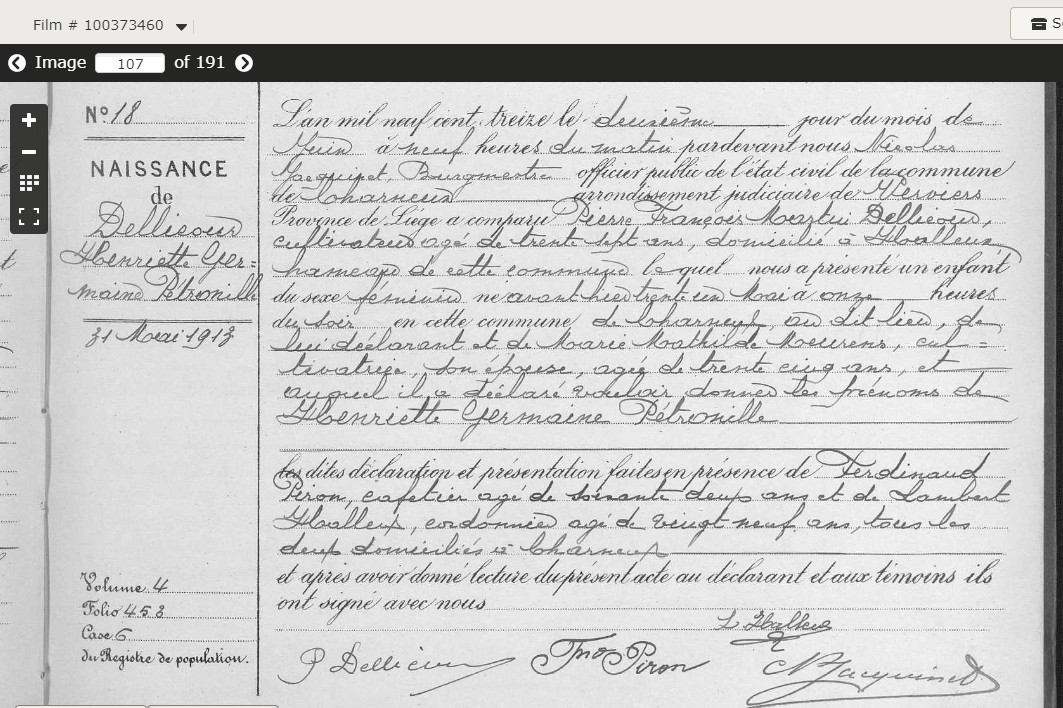 Film # 100373460
Image 107 of 191
Nº 18
NAISSANCE
de
Dellicour
Henriette Ger=
maine Pétronille
31 Mai 1913
Volume 4
Folio 453
Case 6
du Registre de population.
L'an mil neuf cent treize le deuxième jour du mois de
Juin à neuf heures du matin pardevant nous Nicolas
Jacquinet, Bourgmestre officier public de l'état civil de la commune
de Charneux arrondissement judiciaire de Verviers
Province de Liége a comparu Pierre François Martin Dellicour,
cultivateur agé de trente sept ans, domicilié à Halleux
hameau de cette commune lequel nous a présenté un enfant
du sexe féminin né avant hier trente un Mai à onze heures
du soir en cette commune de Charneux, au dit lieu, de
lui déclarant et de Marie Mathilde Meurens, cul=
tivatrice, son épouse, agée de trente cinq ans, et
auquel il a déclaré vouloir donner les prénoms de
Henriette Germaine Pétronille
les dites déclaration et présentation faites en présence de Ferdinand
Piron, cafetier agé de soixante deux ans et de Lambert
Halleux, cordonnier agé de vingt neuf ans, tous les
deux domiciliés à Charneux
et après avoir donné lecture du présent acte au déclarant et aux témoins ils
ont signé avec nous
L Halleux
P Dellicour
Piron
N Jacquinet